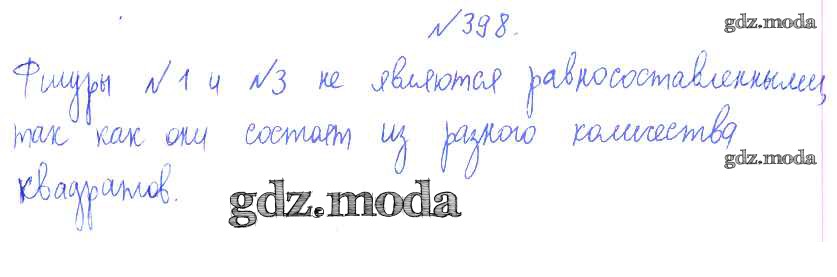 №398.
gdz.moda
Фигуры №1 и №3 не являются равносоставленными,
так как они состоят из разного количества
gdz.moda
квадратов.
gdz.moda